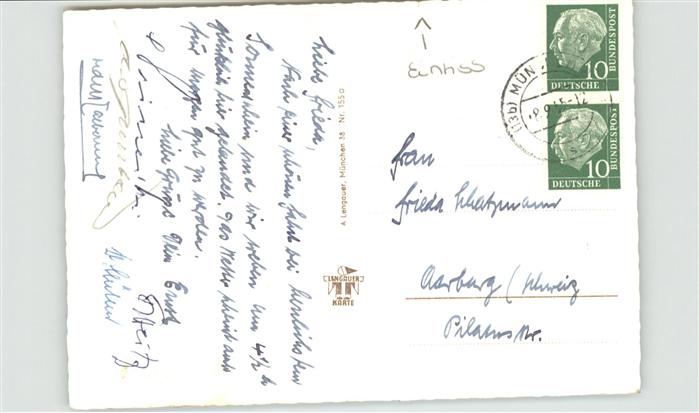 Liebe Frieda,
Nach einer schönen Fahrt bei herrlichstem
Sonnenschein sind wir soeben um 4½ h
glücklich hier gelandet. Das Wetter scheint auch
für morgen gut zu werden.
Liebe Grüsse Dein Ernst
A. Lengauer, München 38 Nr. 155 a
LENGAUER
KARTE
(13b) MÜN
10
DEUTSCHE
BUNDESPOST
10
DEUTSCHE
BUNDESPOST
Frau
Frieda Schatzmann
Aarburg / Schweiz
Pilatusstr.